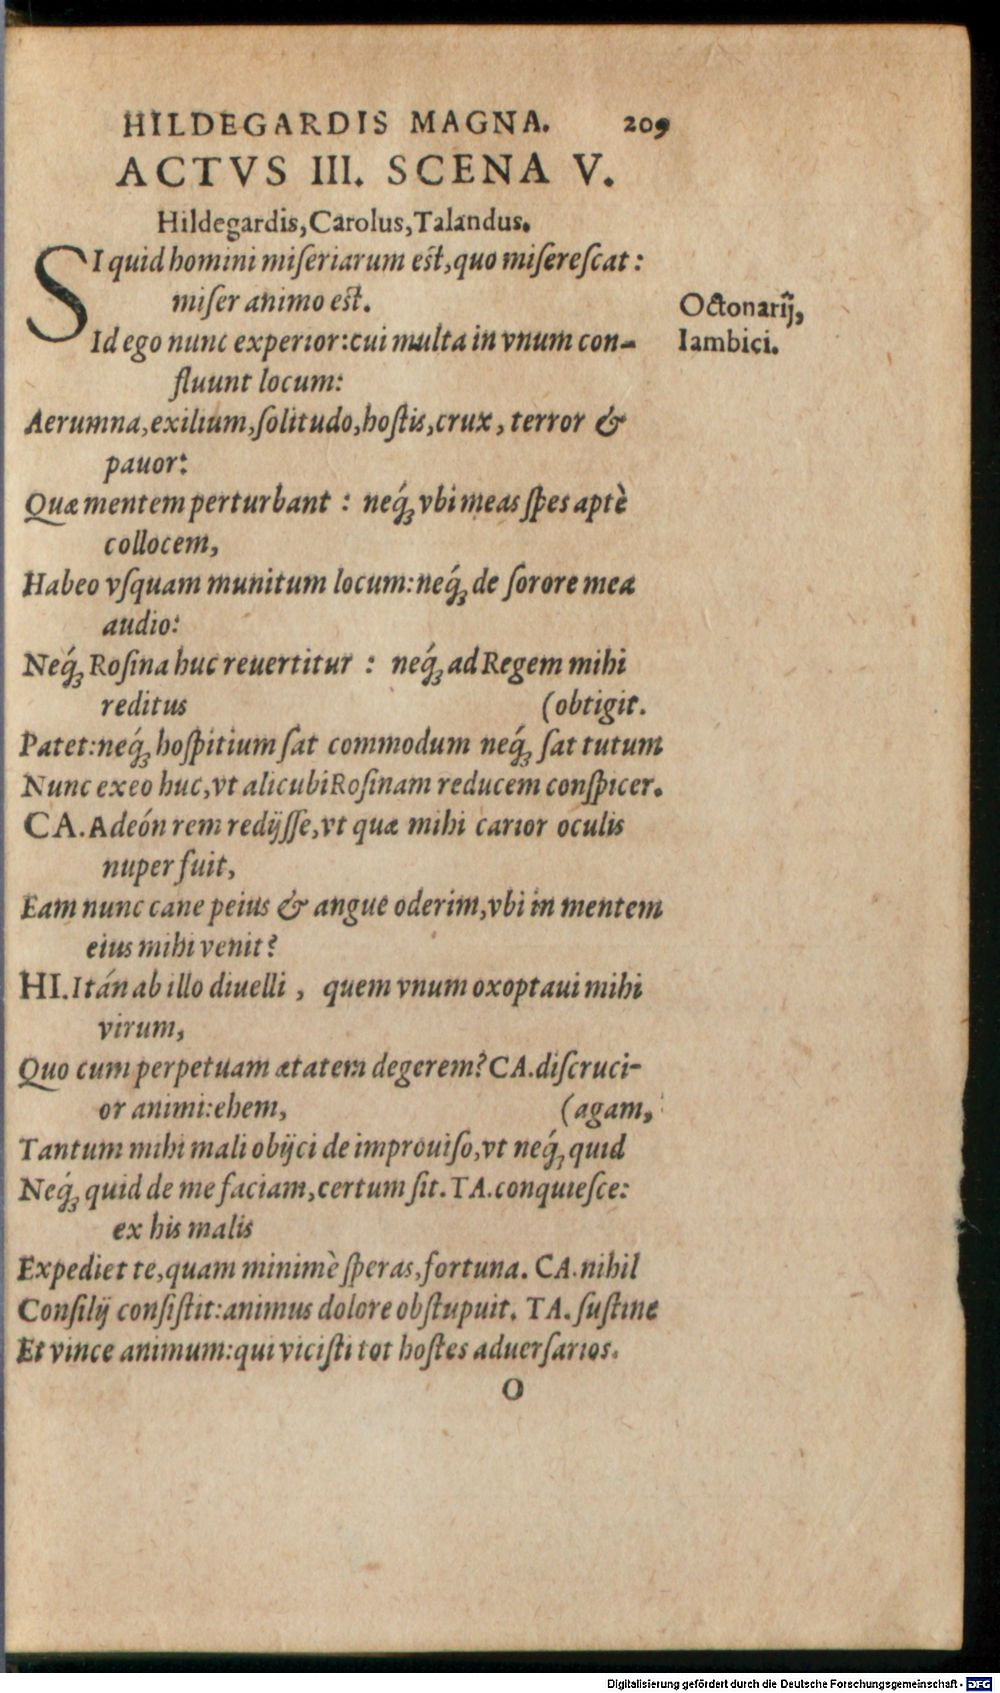 HILDEGARDIS MAGNA. 209
ACTVS III. SCENA V.
Hildegardis, Carolus, Talandus.
SI quid homini miseriarum est, quo miserescat:
miser animo est.
Octonarij,
Id ego nunc experior: cui multa in vnum con-
Iambici.
fluunt locum:
Aerumna, exilium, solitudo, hostis, crux, terror &
pauor:
Quæ mentem perturbant : neq́; vbi meas spes aptè
collocem,
Habeo vsquam munitum locum: neq́; de sorore mea
audio:
Neq́; Rosina huc reuertitur : neq́; ad Regem mihi
reditus (obtigit.
Patet: neq́; hospitium sat commodum neq́; sat tutum
Nunc exeo huc, vt alicubi Rosinam reducem conspicer.
CA. Adeón rem redijsse, vt quæ mihi carior oculis
nuper fuit,
Eam nunc cane peius & angue oderim, vbi in mentem
eius mihi venit?
HI. Itán ab illo diuelli , quem vnum oxoptaui mihi
virum,
Quo cum perpetuam ætatem degerem? CA. discruci-
or animi: ehem, (agam,
Tantum mihi mali obijci de improuiso, vt neq́; quid
Neq́; quid de me faciam, certum sit. TA. conquiesce:
ex his malis
Expediet te, quam minimè speras, fortuna. CA. nihil
Consilij consistit: animus dolore obstupuit. TA. sustine
Et vince animum: qui vicisti tot hostes aduersarios.
O
Digitalisierung gefördert durch die Deutsche Forschungsgemeinschaft - DFG